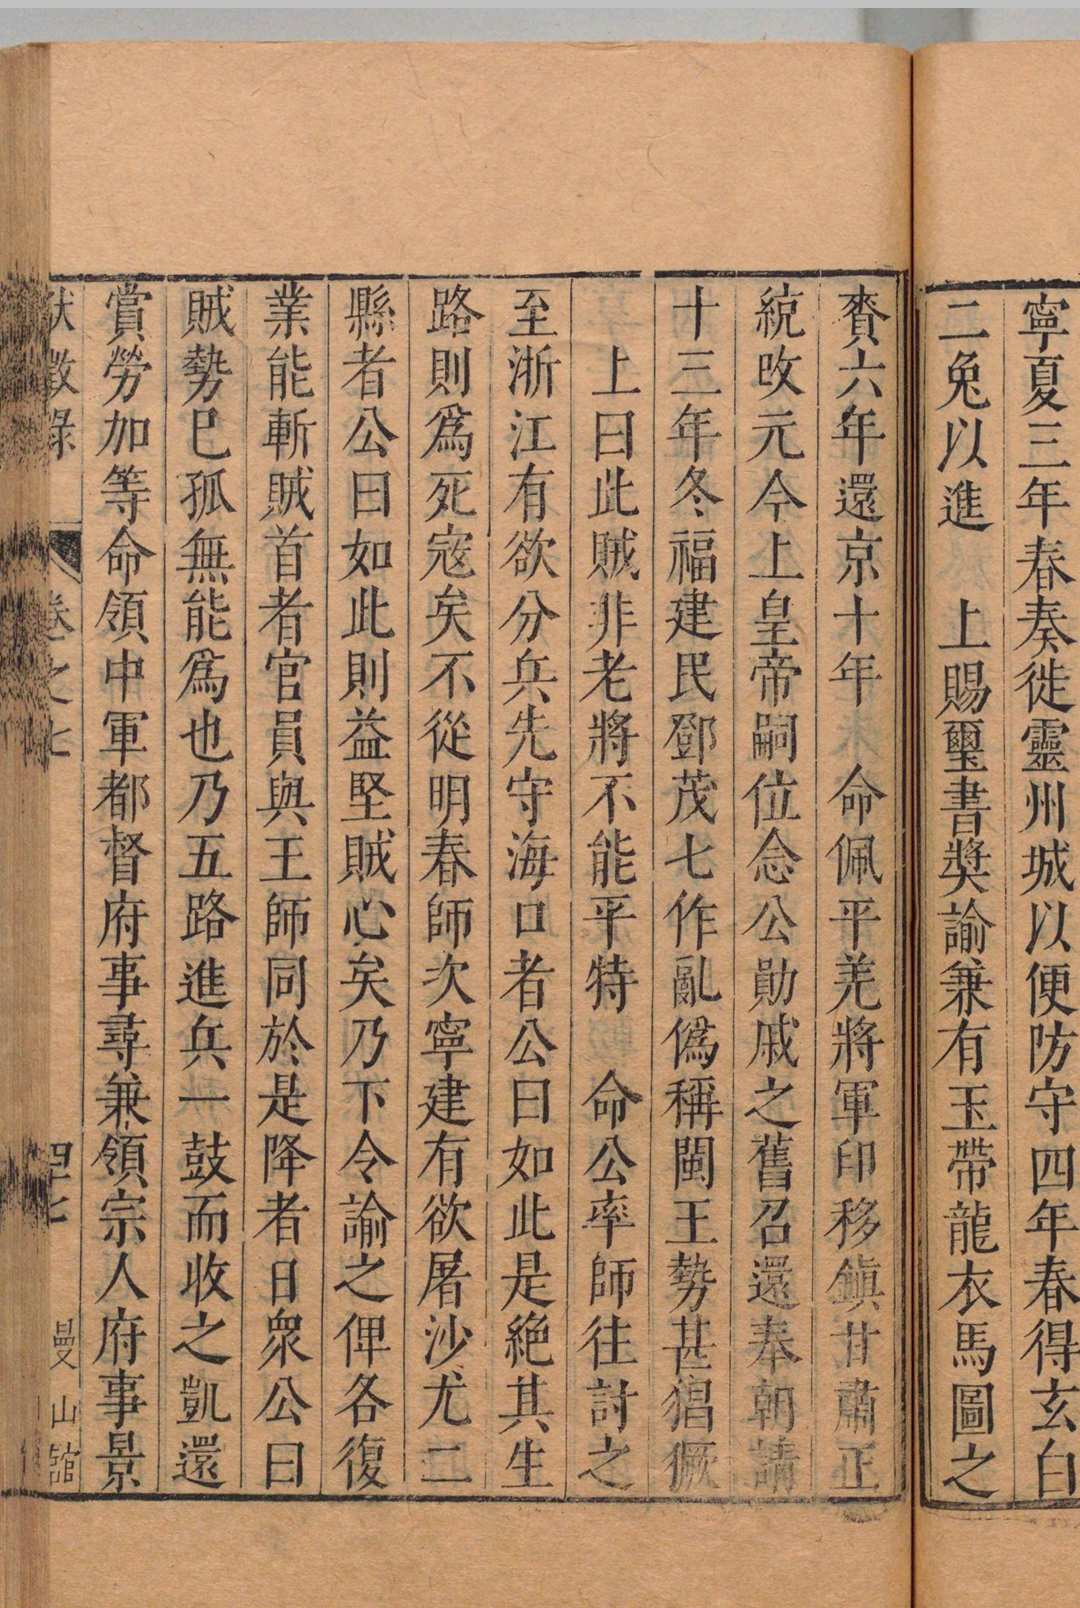 寧夏三年春奏徙靈州城以便防守四年春得玄白
二兔以進　上賜璽書奬諭兼有玉帶龍衣馬圖之
賚六年還京十年　命佩平羌將軍印移鎮甘肅正
統改元今上皇帝嗣位念公勛戚之舊召還奉朝請
十三年冬福建民鄧茂七作亂僞稱閩王勢甚猖獗
上曰此賊非老將不能平特　命公率師往討之
至浙江有欲分兵先守海口者公曰如此是絕其生
路則爲死寇矣不從明春師次寧建有欲屠沙尤二
縣者公曰如此則益堅賊心矣乃下令諭之俾各復
業能斬賊首者官員與王師同於是降者日衆公曰
賊勢巳孤無能爲也乃五路進兵一鼓而收之凱還
賞勞加等命領中軍都督府事尋兼領宗人府事景
獻徵錄　卷之七　四七　曼山館